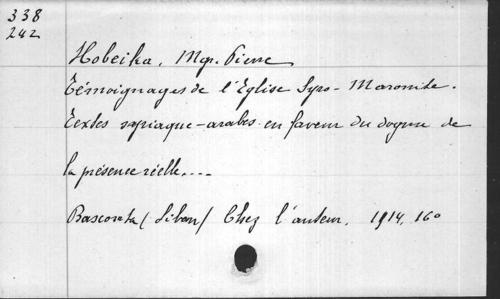 338
242
Hobeika, Mgr. Pierre
Témoignages de l'Eglise Syro-Maronite.
Textes syriaque-arabes en faveur du dogme de
la présence réelle....
Basconta (Liban) Chez l'auteur. 1914, 16o